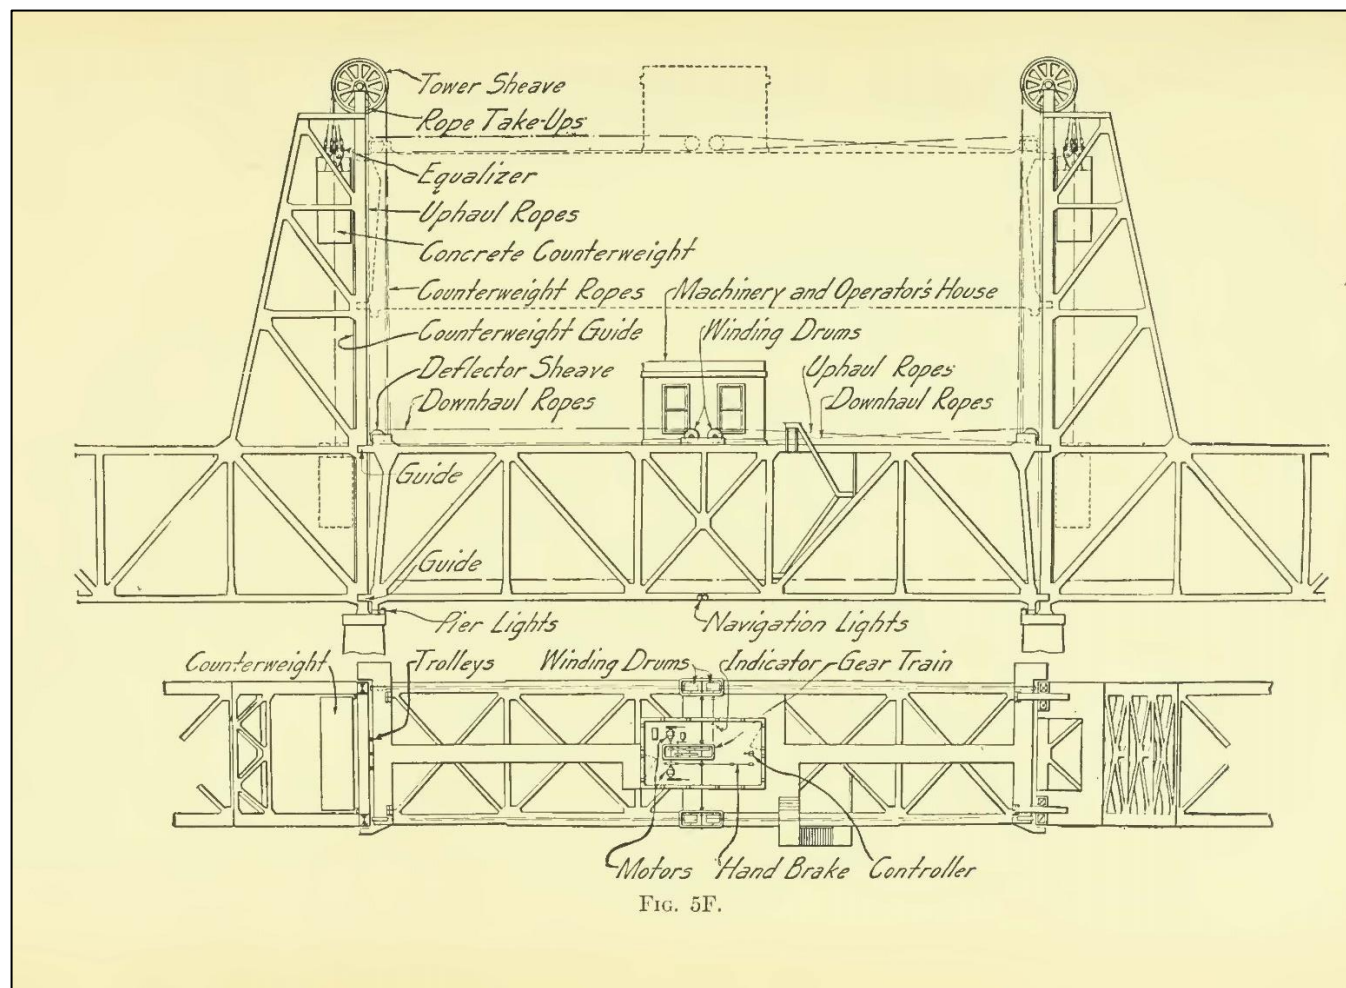 Tower Sheave
Rope Take-Ups
Equalizer
Uphaul Ropes
Concrete Counterweight
Counterweight Ropes
Machinery and Operator's House
Counterweight Guide
Winding Drums
Deflector Sheave
Uphaul Ropes
Downhaul Ropes
Downhaul Ropes
Guide
Guide
Pier Lights
Navigation Lights
Counterweight
Trolleys
Winding Drums
Indicator
Gear Train
Motors
Hand Brake
Controller
FIG. 5F.